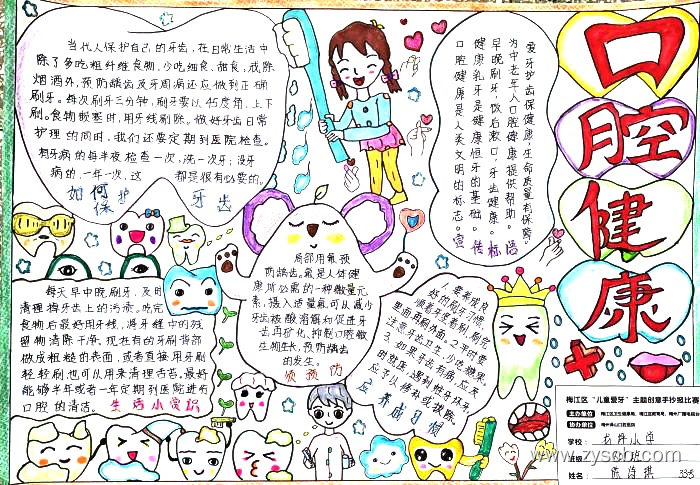 口腔健康
当代人保护自己的牙齿，在日常生活中
除了多吃粗纤维食物，少吃细食、甜食，戒除
烟酒外，预防龋齿及牙周病还应做到正确
刷牙。每次刷牙三分钟，刷牙要以45度角，上下
刷。食物嵌塞时，用牙线剔除。做好牙齿日常
护理的同时，我们还要定期到医院检查。
有牙病的每半年检查一次，洗一次牙；没牙
病的，一年一次，这都是很有必要的。
如何保护牙齿
爱牙护齿保健康，生命质量有保障。
为中老年人口腔健康提供帮助。
早晚刷牙，饭后漱口，牙齿健康。
健康乳牙是健康恒牙的基础。
口腔健康是人类文明的标志。
宣传标语
局部用氟预
防龋齿。氟是人体健
康所必需的一种微量元
素，摄入适量氟可以减少
牙齿被酸溶解和促进牙
齿再矿化，抑制口腔微
生物生长，预防龋齿
的发生。
每天早中晚刷牙，及时
清理掉牙齿上的污渍。吃完
食物后最好用牙线，将牙缝中的残
留物清除干净。现在有的牙刷背部
做成粗糙的表面，或者直接用牙刷
轻轻刷也可以用来清理舌苔。最好
能够半年或者一年定期到医院进行
口腔的清洁。
要养成良
好的刷牙习惯，
顺着牙缝刷，刷完
里面再刷外面。2.平时要
注意牙齿卫生，少吃糖果。
3.如果牙齿有病，应及
时就医，遇到蛀牙坏牙，
应予以修补或拔除。
梅江区“儿童爱牙”主题创意手抄报比赛
主办单位
协办单位
学校：
班级
姓名
www.zyscb.com